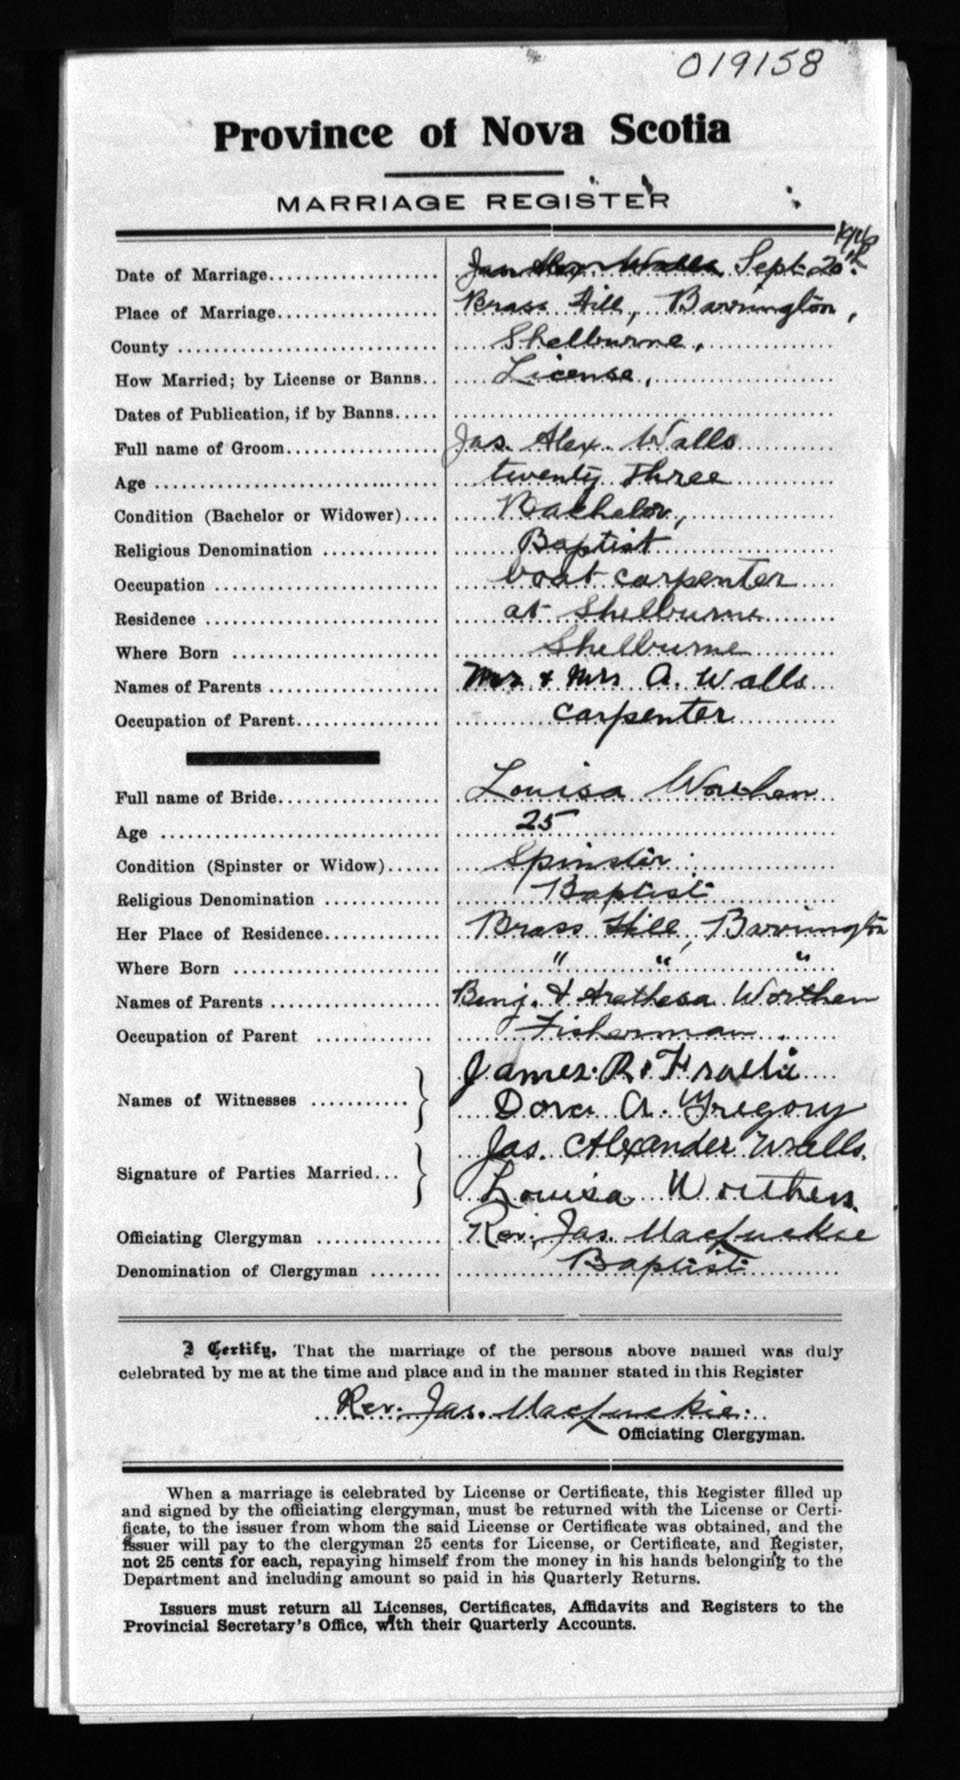 019158
Province of Nova Scotia
MARRIAGE REGISTER
Date of Marriage.................. Jas Alex Walls Sept. 20th
Place of Marriage.................. Brass Hill, Barrington,
County ............................ Shelburne,
How Married; by License or Banns.. License,
Dates of Publication, if by Banns.....
Full name of Groom.................. Jas. Alex. Walls
Age .............................. twenty three
Condition (Bachelor or Widower).... Bachelor,
Religious Denomination ............ Baptist
Occupation ........................ boat carpenter
Residence ......................... at Shelburne
Where Born ....................... Shelburne
Names of Parents .................. Mr & Mrs A. Walls
Occupation of Parent................ carpenter
Full name of Bride.................. Louisa Worthen
Age .............................. 25
Condition (Spinster or Widow)...... Spinster
Religious Denomination ............ Baptist
Her Place of Residence............. Brass Hill, Barrington
Where Born ....................... " " "
Names of Parents .................. Benj. & Arethesa Worthen
Occupation of Parent ............. Fisherman
Names of Witnesses ........... James R.
Dora A. Gregory
Signature of Parties Married... Jas. Alexander Walls.
Louisa Worthen.
Officiating Clergyman ............. Rev. Jas. MacLuckie
Denomination of Clergyman ........ Baptist
I Certify, That the marriage of the persons above named was duly
celebrated by me at the time and place and in the manner stated in this Register
Rev. Jas. MacLuckie.
Officiating Clergyman.
When a marriage is celebrated by License or Certificate, this Register filled up
and signed by the officiating clergyman, must be returned with the License or Certi-
ficate, to the issuer from whom the said License or Certificate was obtained, and the
Issuer will pay to the clergyman 25 cents for License, or Certificate, and Register,
not 25 cents for each, repaying himself from the money in his hands belonging to the
Department and including amount so paid in his Quarterly Returns.
Issuers must return all Licenses, Certificates, Affidavits and Registers to the
Provincial Secretary's Office, with their Quarterly Accounts.